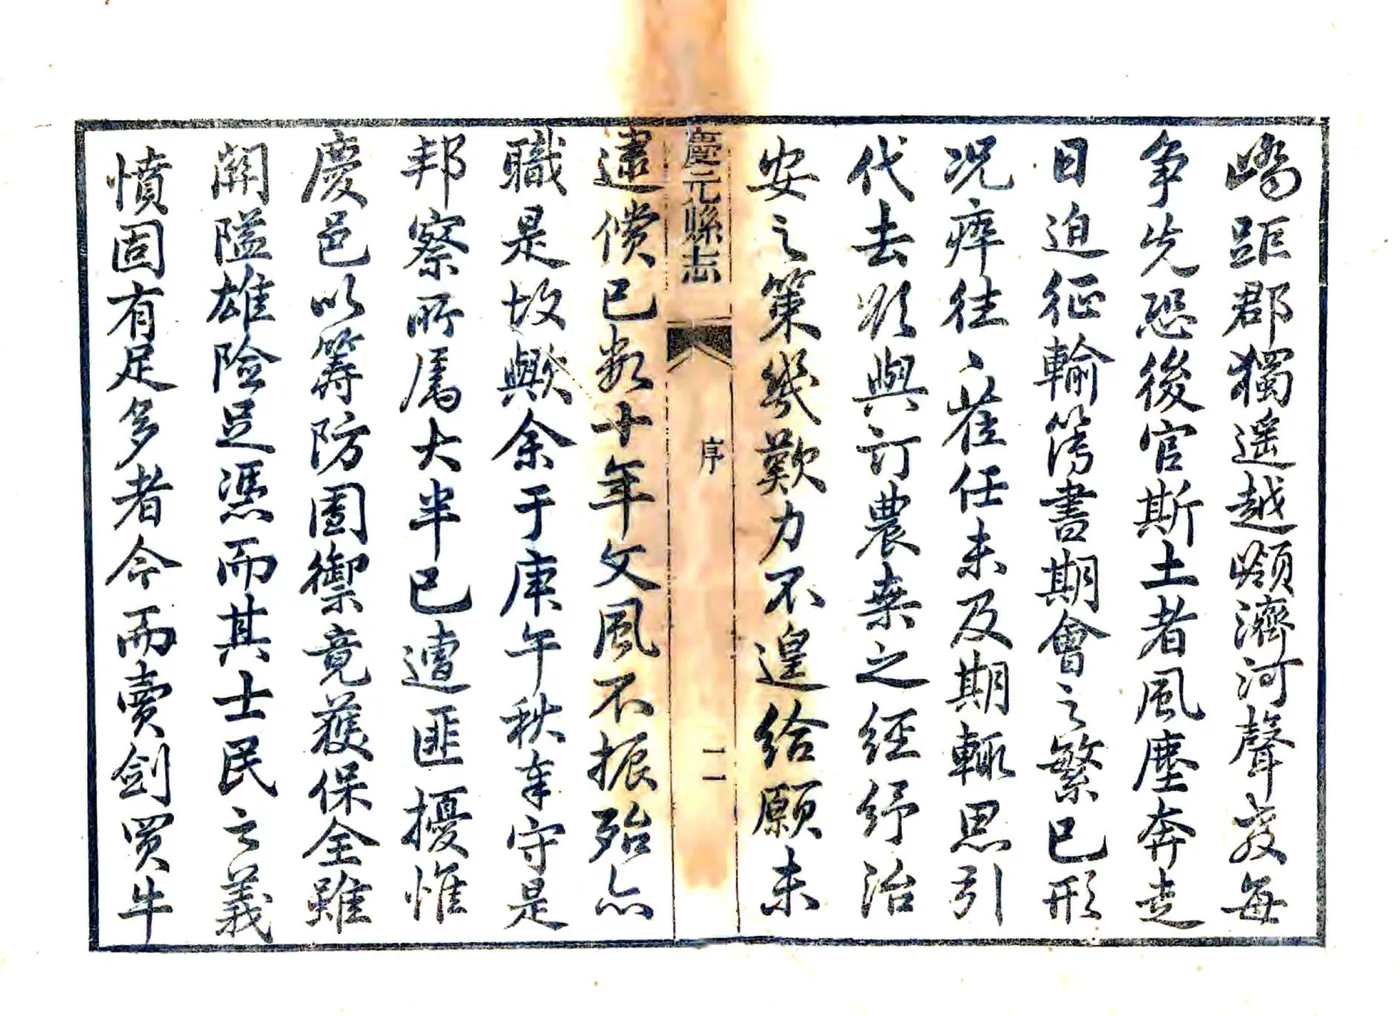 嶠距郡獨遥越嶺濟河聲教每
争先恐後官斯土者風塵奔走
日迫征輸簿書期會之繁已形
况瘁往〻莅任未及期輙思引
代去欲與訂農桒之經紓治
安之策幾歎力不遑給願未
慶元縣志
序
二
逮償已数十年文風不振殆亦
職是故歟余于庚午秋奉守是
邦察所属大半已遭匪擾惟
慶邑以籌防圉禦竟獲保全雖
關隘雄險足憑而其士民之義
憤固有足多者今而賣劍買牛